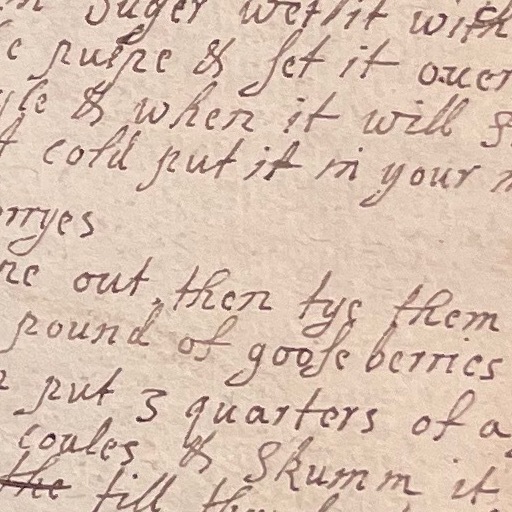 Suger wett it with
puipe & set it over
& when it will
cold put it in your
rryes
out, then tye them
pound of goose berries
put 3 quarters of a
coales & Skumm it
the till